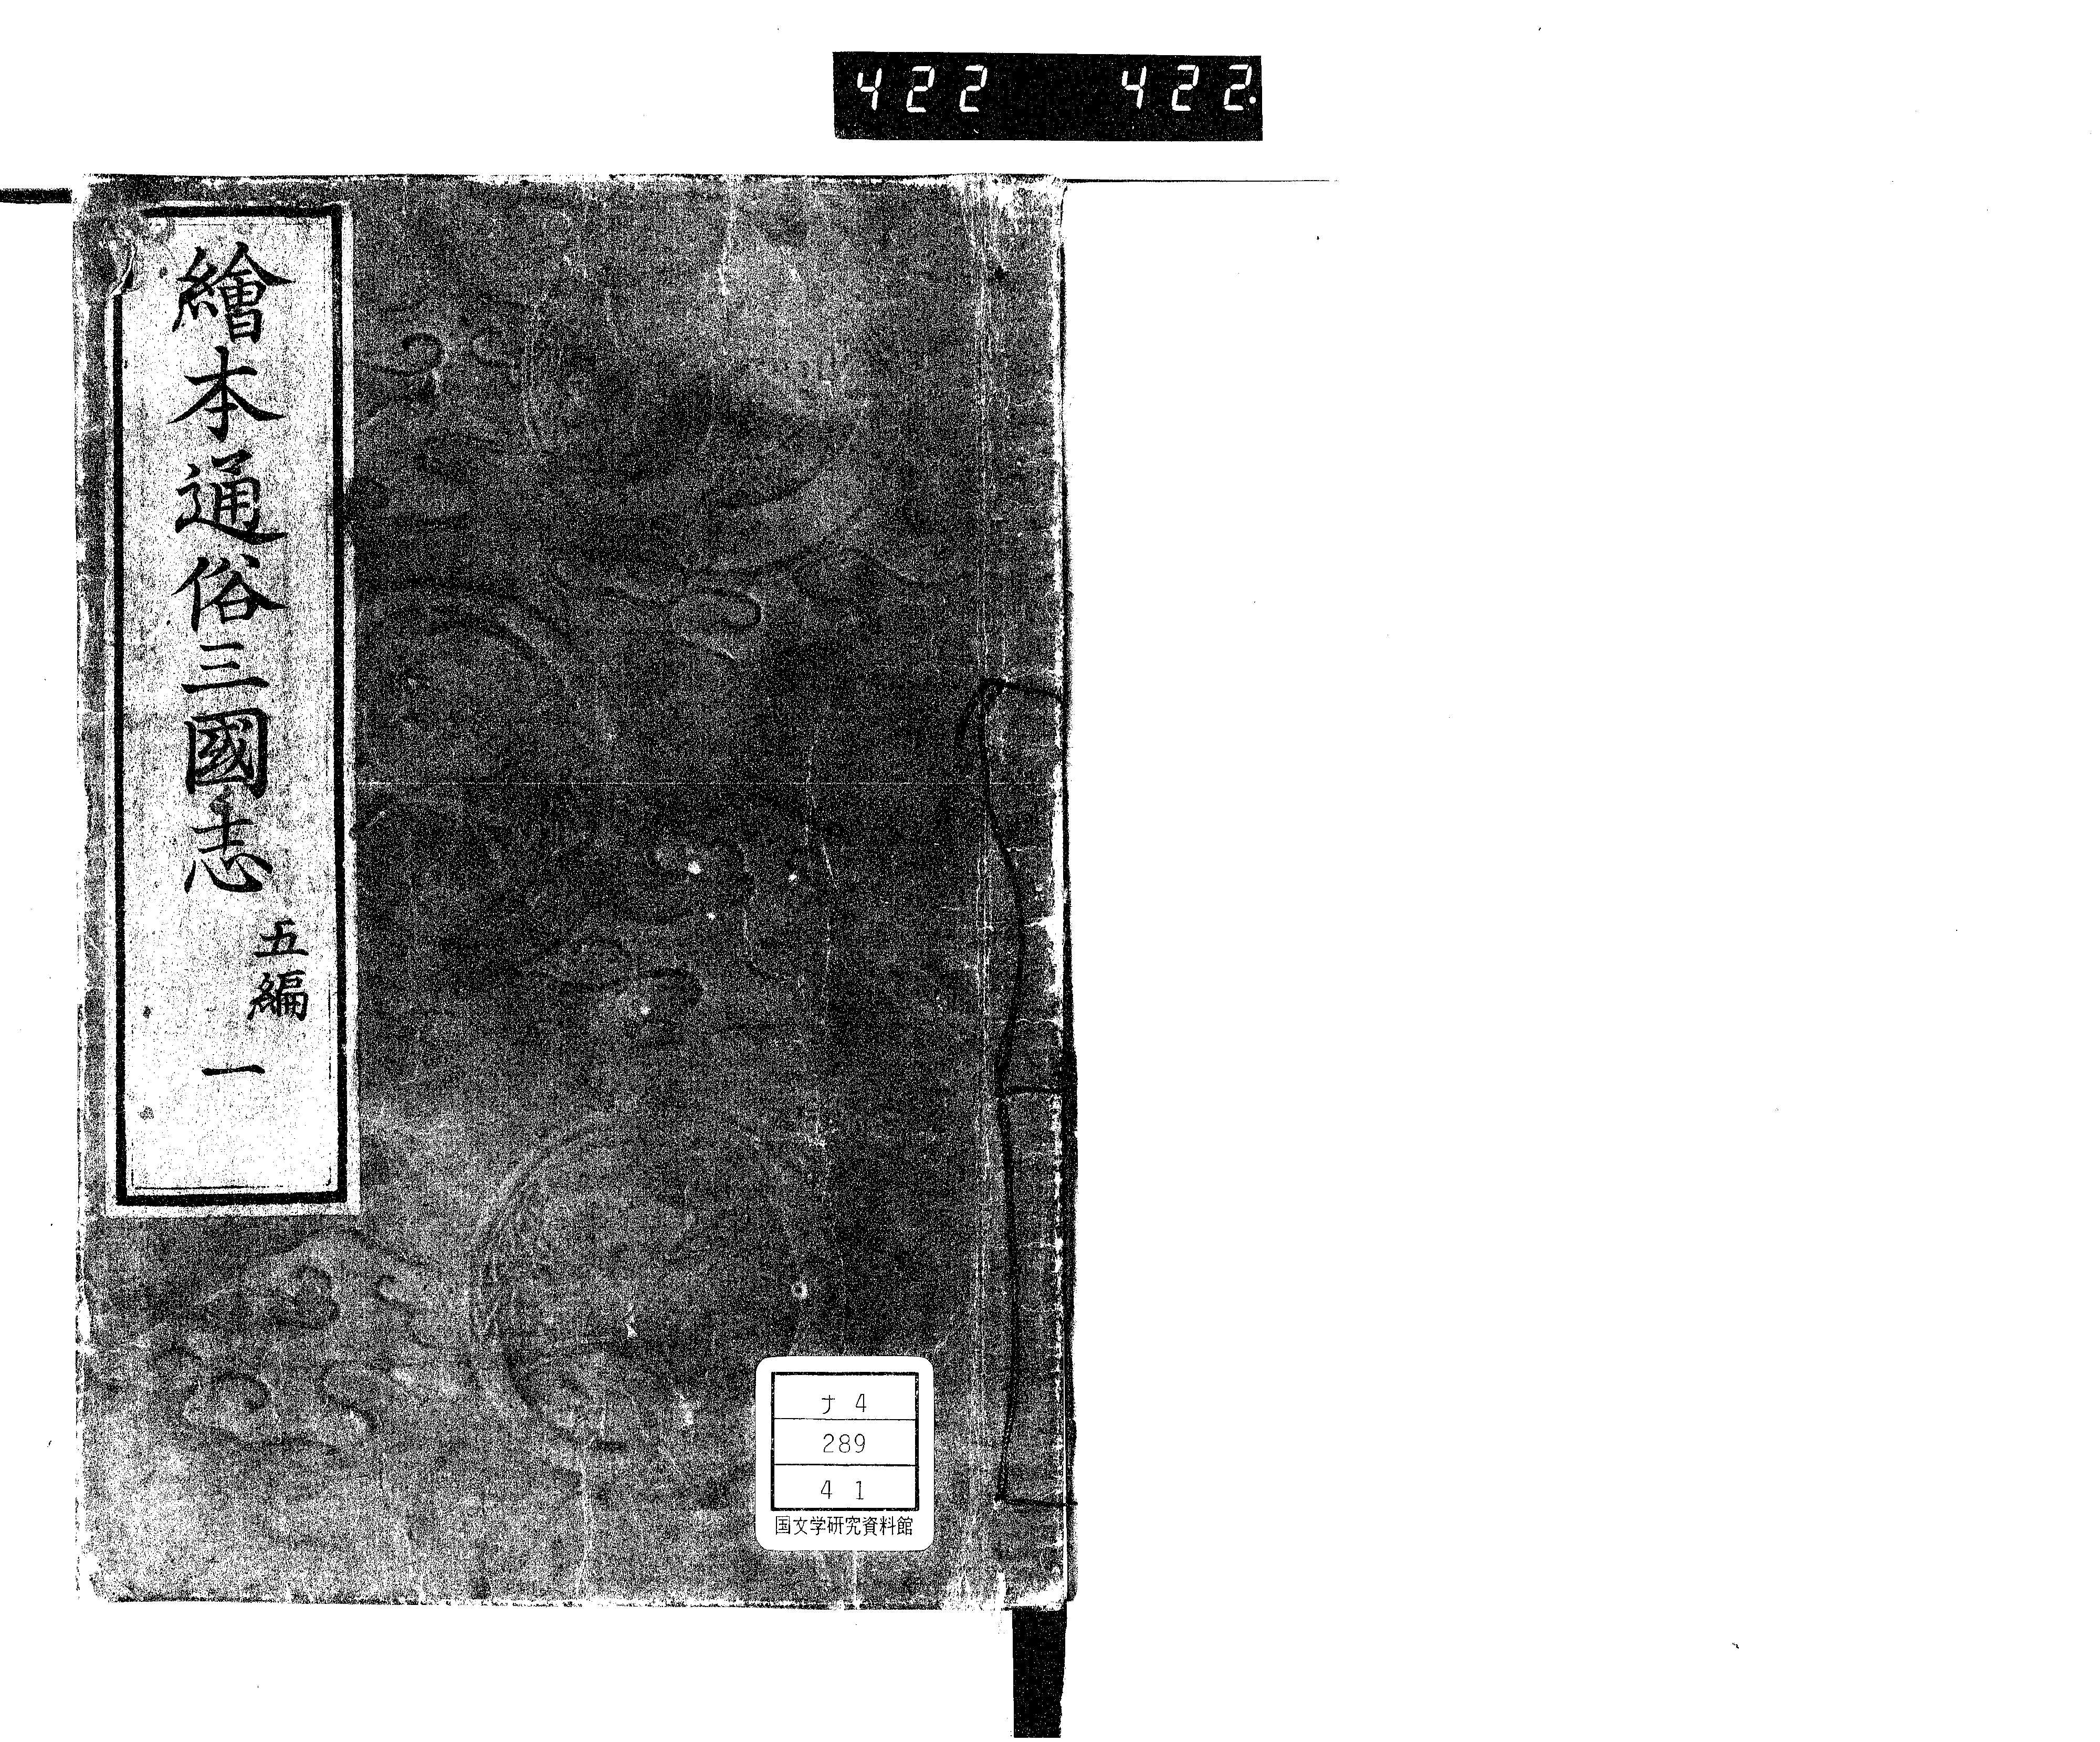 422 422.
繪本通俗三國志
五編
一
ナ 4
289
4 1
国文学研究資料館